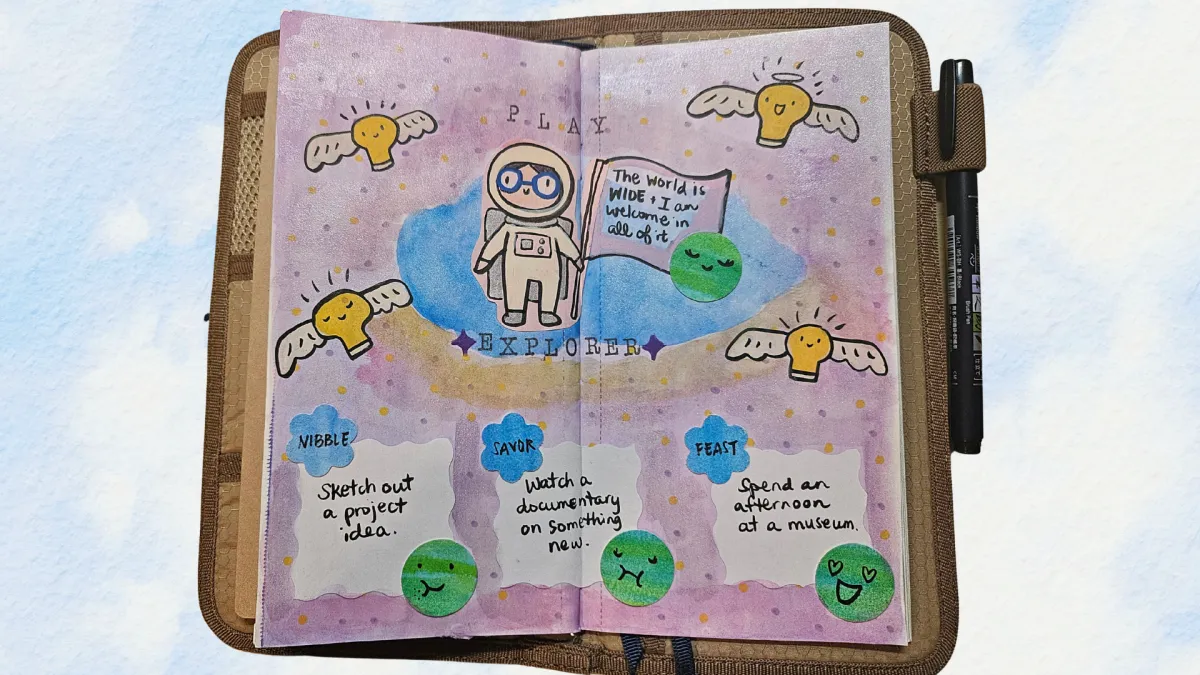 PLAY
The world is
WIDE + I am
welcome in
all of it.
EXPLORER
NIBBLE
Sketch out
a project
idea.
SAVOR
Watch a
documentary
on something
new.
FEAST
Spend an
afternoon
at a museum.
Brush Pen